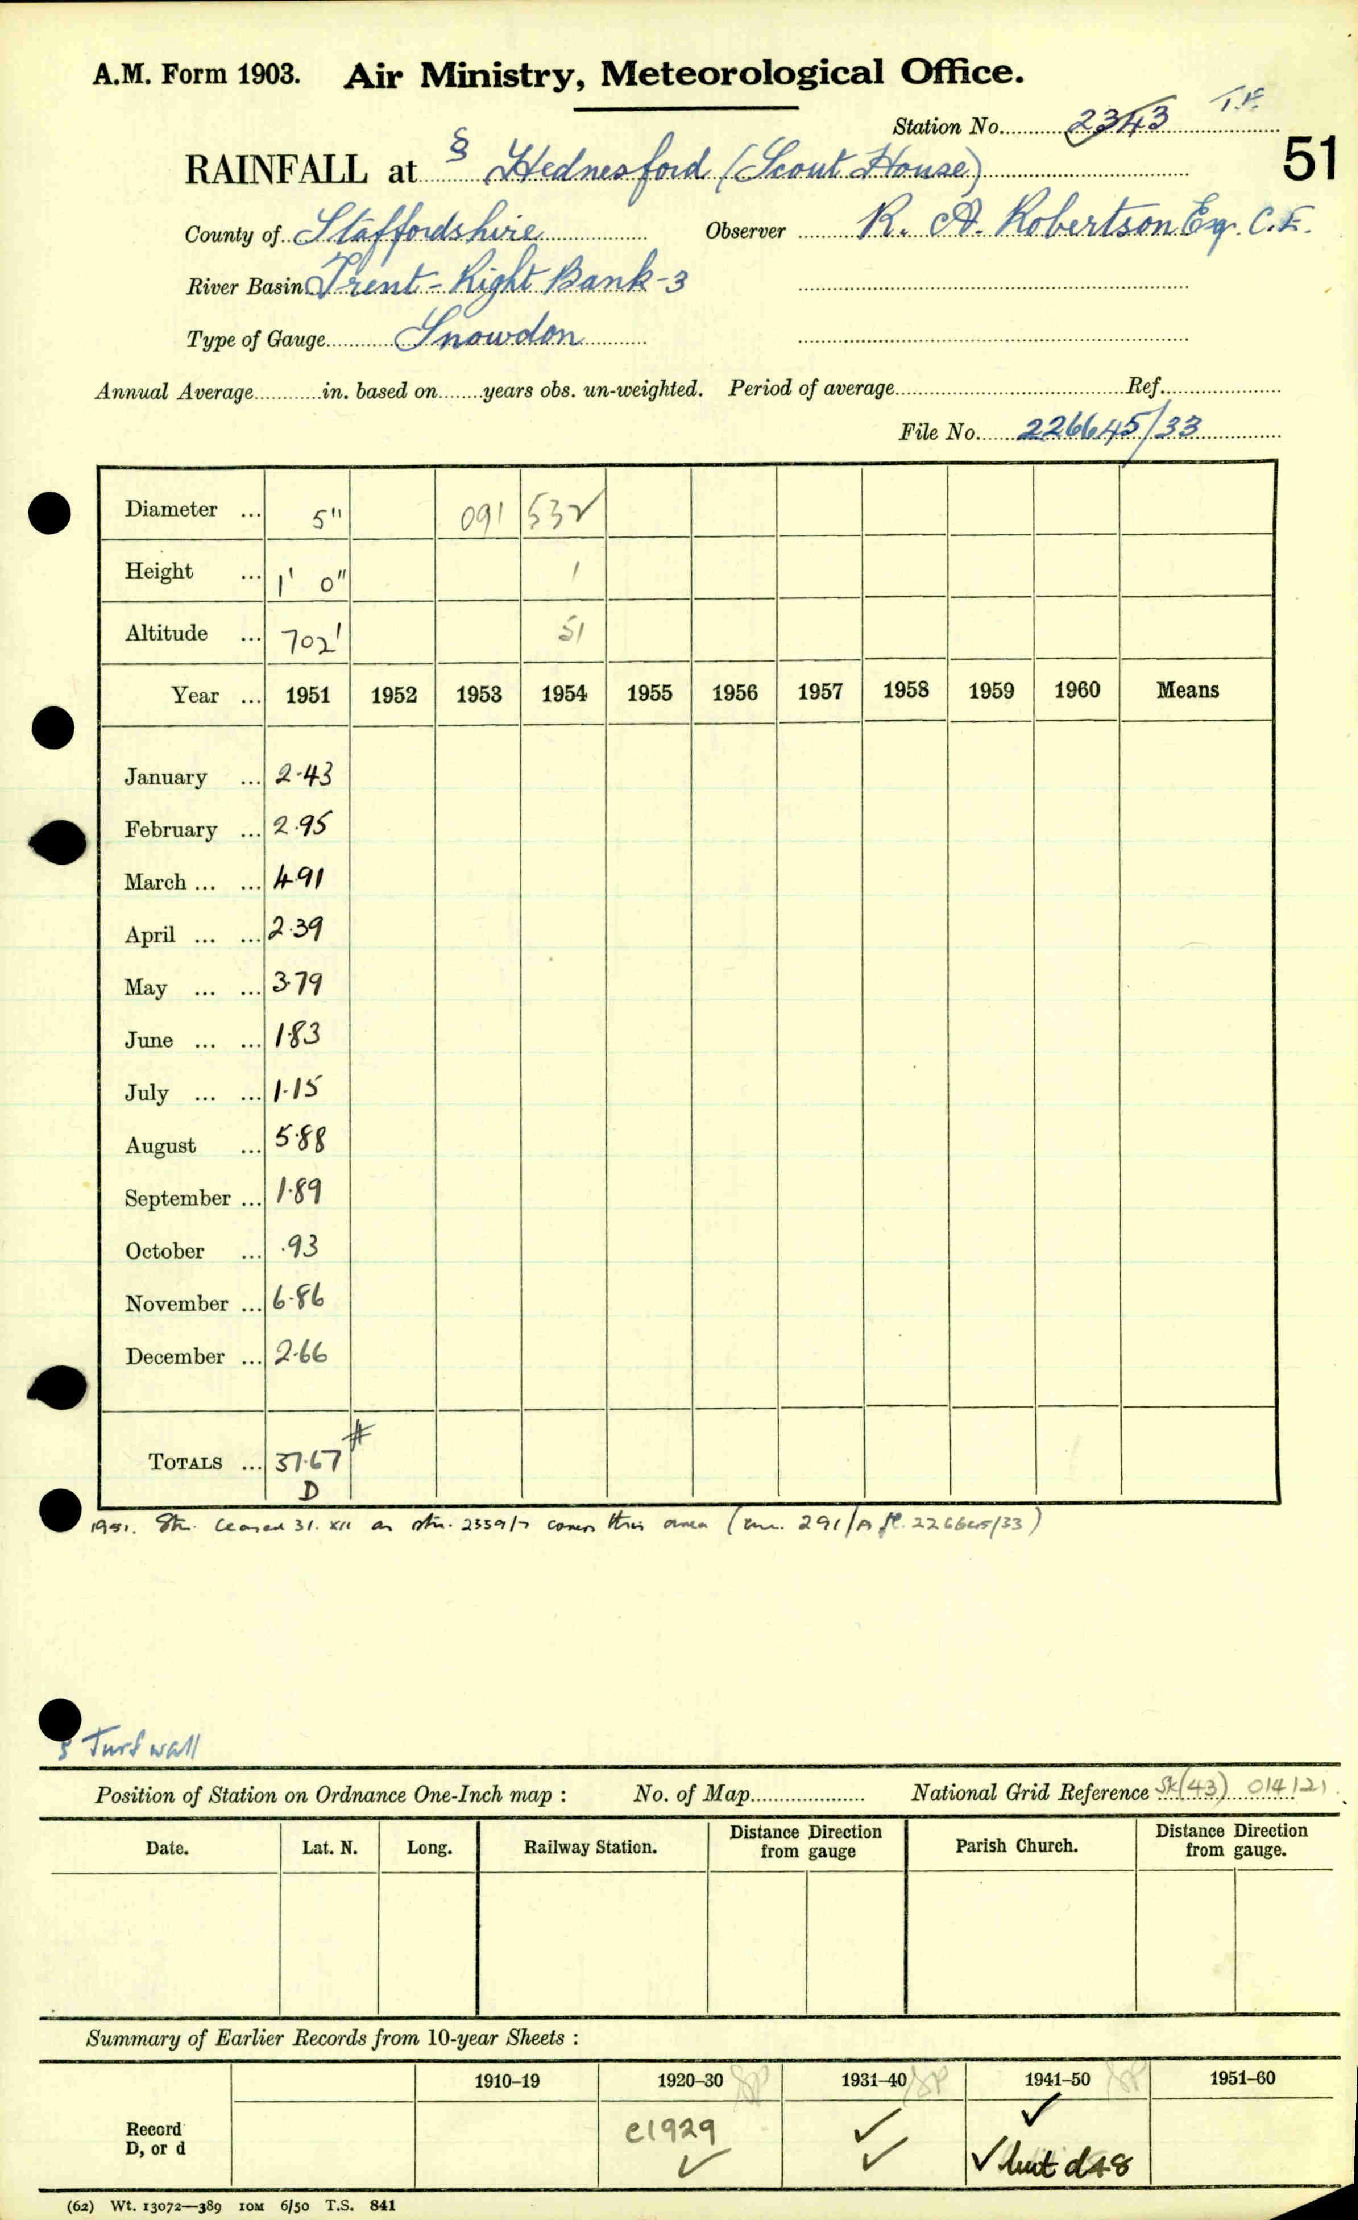 A.M. Form 1903. Air Ministry, Meteorological Office.
Station No. 2343 T.F.
51
RAINFALL at § Hednesford (Scout House)
County of Staffordshire Observer R. A. Robertson Esq. C.E.
River Basin Trent - Right Bank - 3
Type of Gauge Snowdon
Annual Average in. based on years obs. un-weighted. Period of average Ref.
File No. 226645/33
Diameter ... 5" 091 532
Height ... 1' 0" 1
Altitude ... 702' 51
Year ... 1951 1952 1953 1954 1955 1956 1957 1958 1959 1960 Means
January ... 2.43
February ... 2.95
March ... ... 4.91
April ... ... 2.39
May ... ... 3.79
June ... ... 1.83
July ... ... 1.15
August ... 5.88
September ... 1.89
October ... .93
November ... 6.86
December ... 2.66
TOTALS ... 37.67 #
D
1951. Stn. Ceased 31. XII as stn. 2339/7 covers this area ( 291/A fl. 226645/33)
§ Turf wall
Position of Station on Ordnance One-Inch map : No. of Map National Grid Reference SK(43) 014121
Date. Lat. N. Long. Railway Station. Distance Direction from gauge Parish Church. Distance Direction from gauge.
Summary of Earlier Records from 10-year Sheets :
1910–19 1920–30 1931–40 1941–50 1951–60
Record D, or d c1929 ✓ ✓ ✓ ✓ ✓ but d48
(62) Wt. 13072—389 10M 6/50 T.S. 841